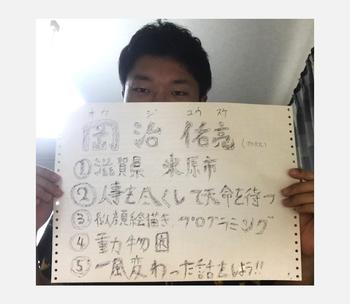 オウ ジ ユウ スケ
岡 治 佑亮
①滋賀県 米原市
②人事を尽くして天命を待つ
③似顔絵描き、プログラミング
④動物園
⑤一風変わった話をしよう!!